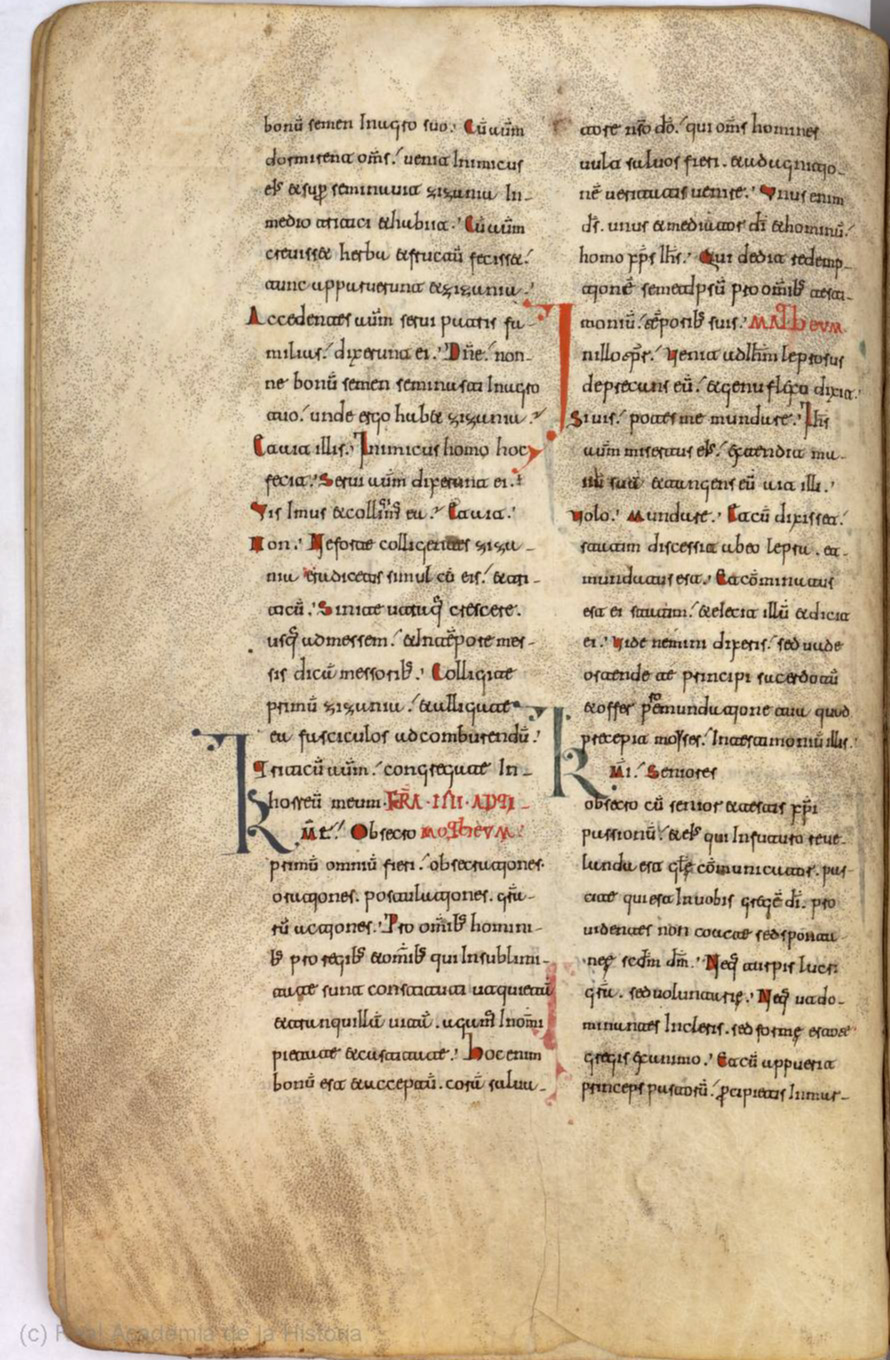 bonū semen In agro suo. Cū aūm
dormirent oms. uenit Inimicus
eīs et supr seminauit zizania In
medio tritici et habiit. Cū aūm
creuisset herba et fructū fecisset.
tunc apparuerunt et zizania.
Accedentes aūm serui patris fa
milias. dixerunt ei. Dn̄e. non
ne bonū semen seminasti In agro
tuo. unde ergo habet zizania.
Et ait illis. Inimicus homo hoc
fecit. Serui aūm dixerunt ei.
Vis Imus et collimꝰ ea. Et ait.
Non. Ne forte colligentes ziza
nia eradicetis simul cū eis. et tri
ticū. Sinite utraq̄ crescere.
usq̄ ad messem. et In tēpore mes
sis dicā messoribꝰ. Colligite
primū zizania. et alligate
ea fasciculos ad comburendū.
Triticū aūm. congregate In
horreū meum. FRĀ IIII AD TI
Km̄i. Obsecro MOTHEVM
primū omniū fieri. obsecrationes
orationes. postulationes. grā
rū actiones. Pro om̄ibꝰ homini
bꝰ pro regibꝰ et omībꝰ qui In sublimi
tate sunt constituti ut quietā
et tranquillā uitā. agam̄ In om̄i
pietate et castitate. Hoc enim
bonū est et acceptū. corā salua
tore nr̄o dō. qui om̄s homines
uult saluos fieri. et ad agnitio
nē ueritatis uenire. Vnus enim
dꝰ. unus et mediator dī et hominū.
homo xp̄s Ih̄s. Qui dedit redemp
tionē semetipsū pro omībꝰ testi
moniū. tēporibꝰ suis. MATHEVM
In illo tp̄r. uenit ad Ih̄m leprosus
deprecans eū. et genu flexo dixit.
Si uis. potes me mundare. Ih̄s
aūm misertus eīs. extendit ma
nū suā et tangens eū ait illi.
Volo. Mundare. Et cū dixisset.
statim discessit ab eo lepra. et
mundatus est. Et cōminatus
est ei statim. et elecit illū et dicit
ei. Vide nemini dixeris. sed uade
ostende te principi sacerdotū
et offer pro emundatione tua quod
precepit moyses. In testimoniū illis.
Km̄i. Seniores
obsecro cū senior et testis xp̄i
passionū. et eīs qui In futuro reue
landa est glē cōmunicator. pas
cite qui est In uobis gregē dī. pro
uidentes non coacte sed spontan
nee scdm dm̄. Neq̄ turpis lucri
grā. sed uoluntarię. Neq̄ ut do
minantes In cleris. sed formę estote
gregis ex animo. Et cū apparuerit
princeps pastorū. percipietis Inmar